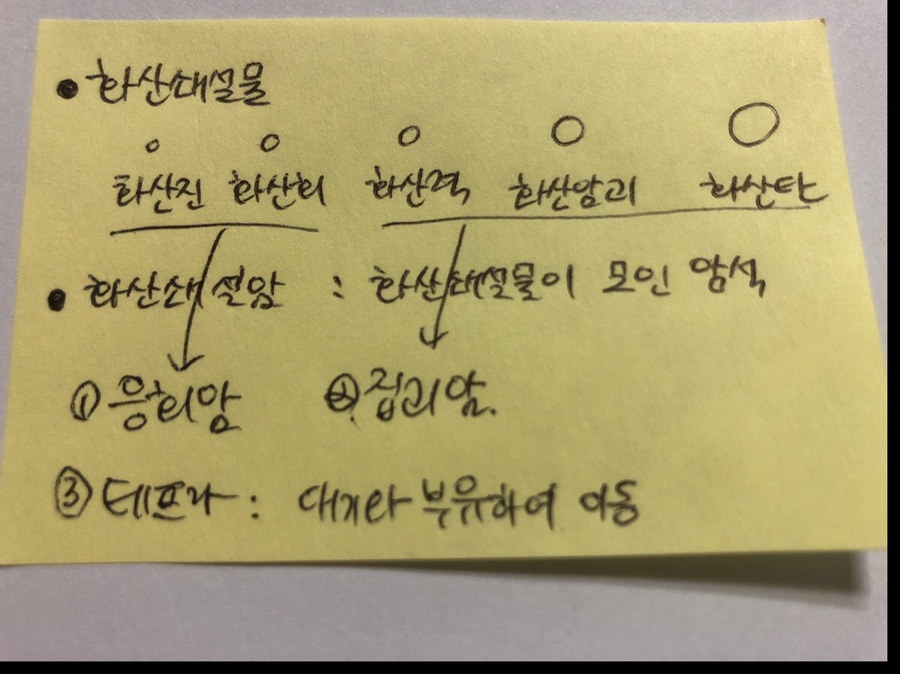 • 화산쇄설물
화산진 화산회 화산력 화산암괴 화산탄
• 화산쇄설암 : 화산쇄설물이 모인 암석
① 응회암 ② 집괴암.
③ 테프라 : 대기와 부유하여 이동